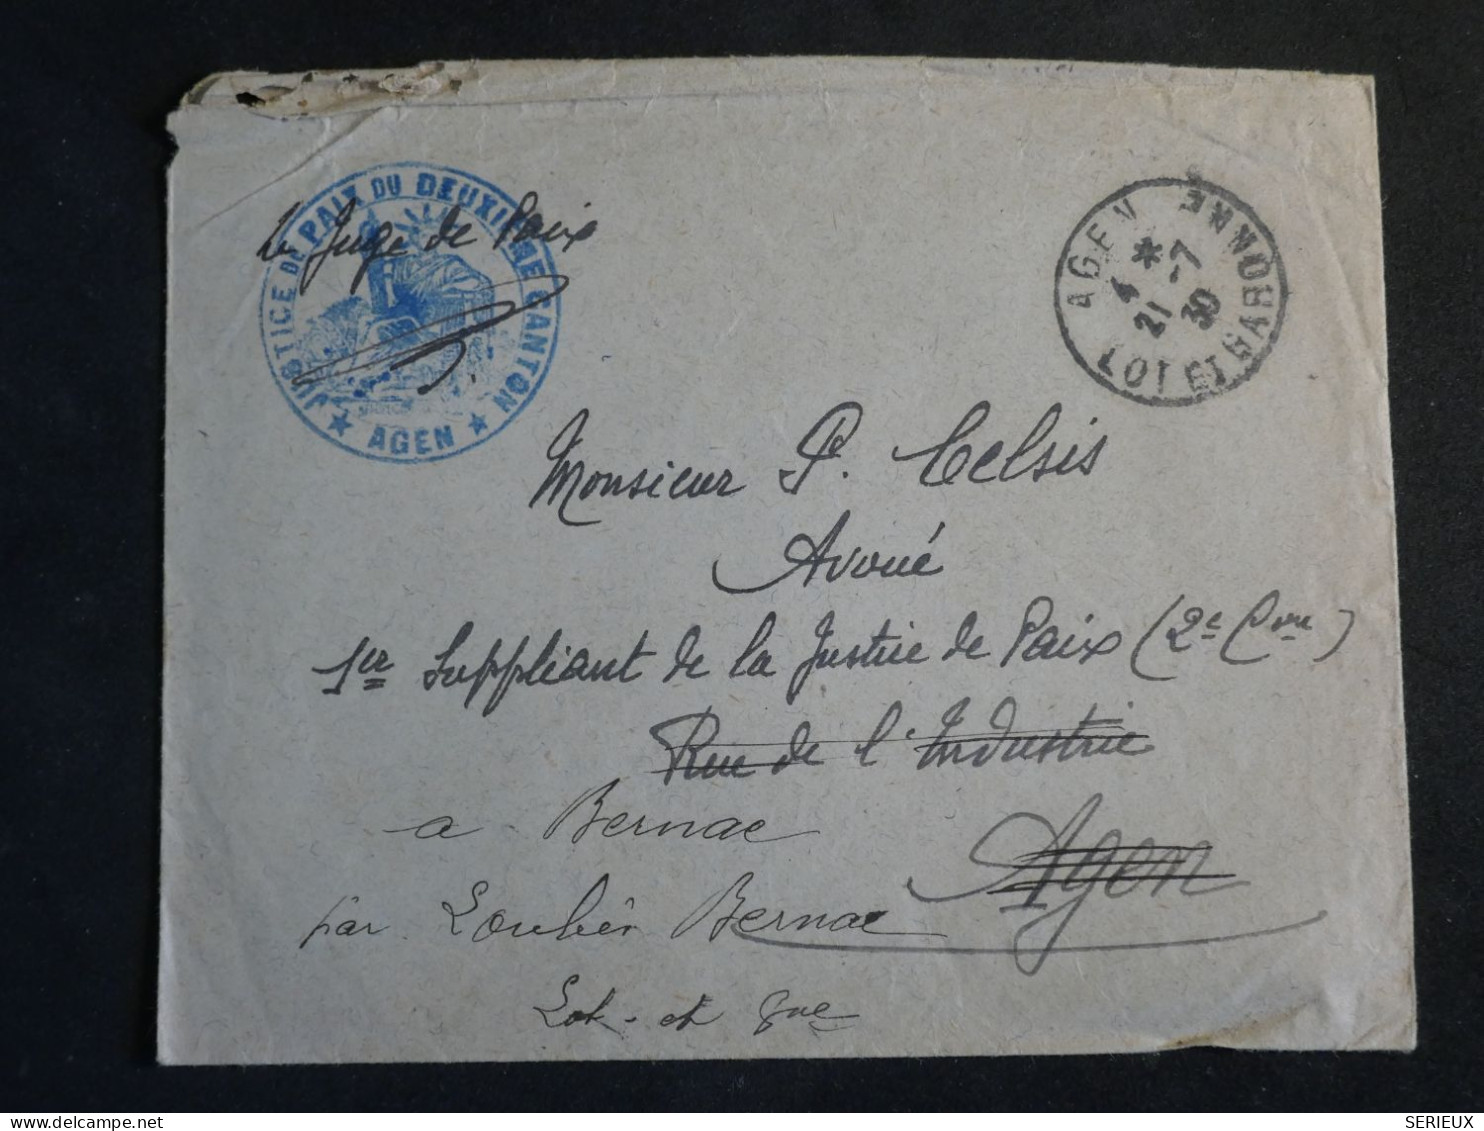 JUSTICE DE PAIX DU DEUXIEME CANTON
★ AGEN ★
Le Juge de Paix
AGEN LOT ET GARONNE
4 *
21 -7
30
Monsieur P. Celsis
Avoué
1er Suppliant de la Justice de Paix (2e Con)
Rue de l'Industrie
Agen
a Bernac
par Loubès Bernac
Lot-et Gne
DELCAMPE.NET
SERIEUX